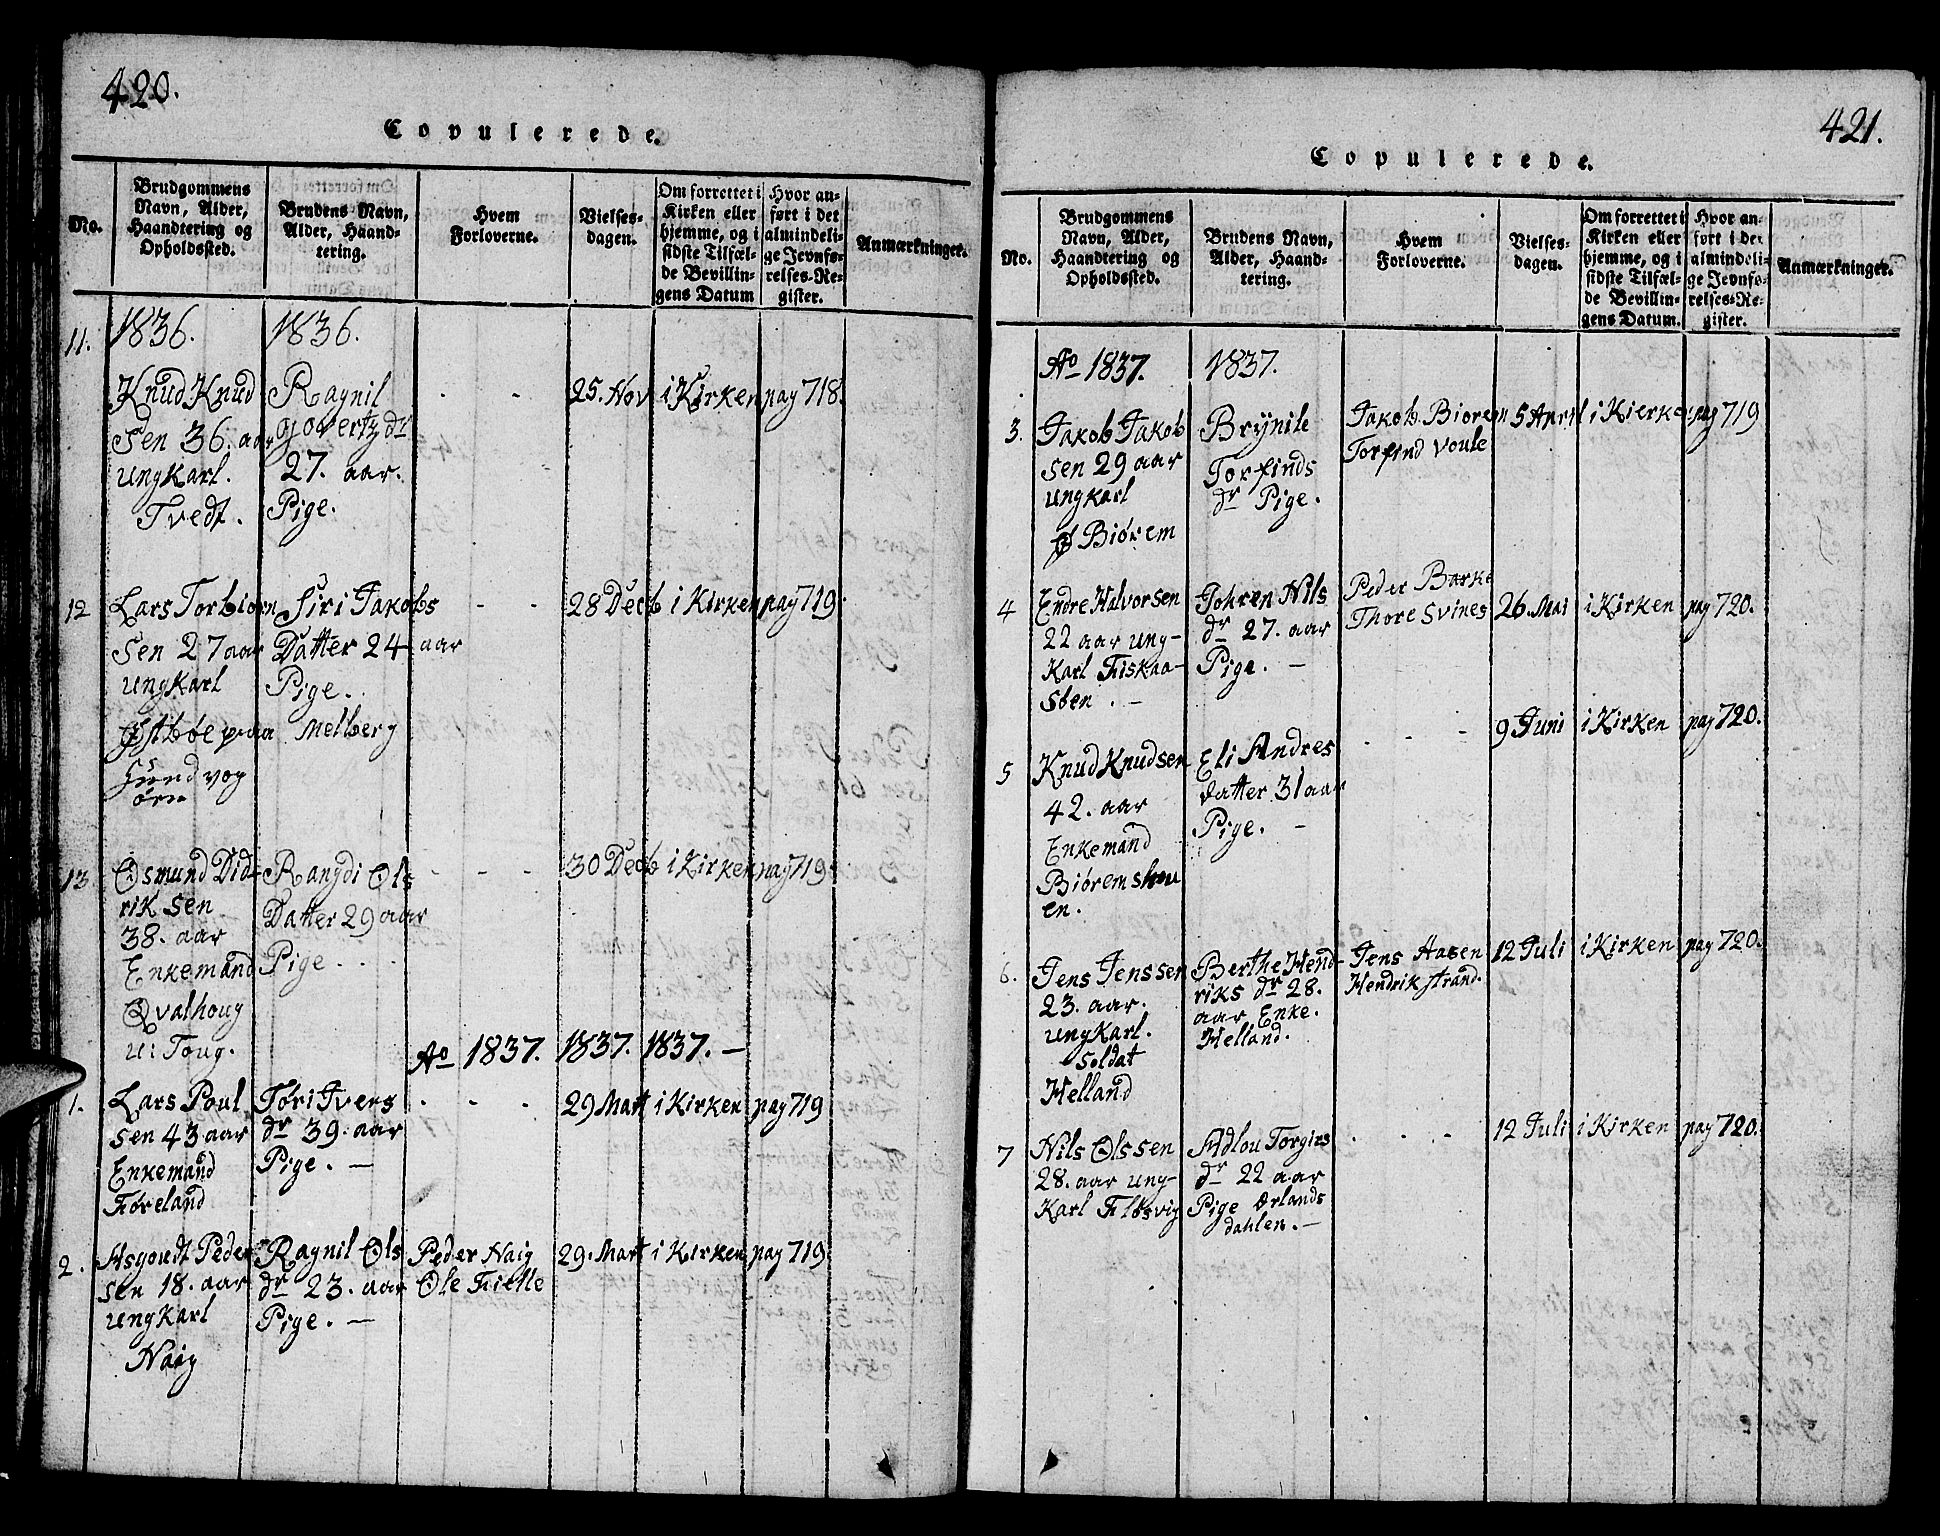 420.
Copulerede.
No.
Brudgommens
Navn, Alder,
Haandtering og
Opholdssted.
Brudens Navn,
Alder, Haand-
tering.
Hvem
Forloverne.
Vielses-
dagen.
Om forrettet i
Kirken eller
hjemme, og i
sidste Tilfæl-
de Bevillin-
gens Datum
Hvor an-
ført i det
almindeli-
ge Jevnfø-
relses-Re-
gister.
Anmærkninger.
1836. 1836.
11.
Knud Knud
sen 36. aar
ungkarl.
Tvedt.
Ragnil
Govertz dr
27. aar.
Pige.
- -
25. Nov i Kirken pag 718.
12
Lars Torbiørn
sen 27 aar
ungkarl
Østbøe paa
Hundvog
øen
Siri Jakobs
Datter 24 aar
Pige.
Melberg
- -
28 Decb i Kirken pag 719.
13
Osmund Did-
rik sen
38. aar
Enkemand
Qvalhoug
u: Toug.
Rangdi Ols
Datter 29 aar
Pige. - -
- - -
30 Decb i Kirken pag 719.
Ao 1837. 1837. 1837. -
1.
Lars Poul
sen 43 aar
Enkemand
Føreland
Tøri Ivers
dr 39. aar
Pige. -
- - -
29 Mart i Kirken pag 719
2.
Asgoudt Peder
sen 18. aar
ungkarl
Naig
Ragnil Ols
dr 23. aar
Pige. -
Peder Naig
Ole Fielle
29. Mart i Kirken pag 719
421.
Copulerede.
No.
Brudgommens
Navn, Alder,
Haandtering og
Opholdssted.
Brudens Navn,
Alder, Haand-
tering.
Hvem
Forloverne.
Vielses-
dagen.
Om forrettet i
Kirken eller
hjemme, og i
sidste Tilfæl-
de Bevillin-
gens Datum.
Hvor an-
ført i det
almindeli-
ge Jevnfø-
relses-Re-
gister.
Anmærkninger.
Ao 1837. 1837.
3.
Jakob Jakob
sen 29 aar
ungkarl
Biørem
Brynile
Torfinds
dr Pige.
Jakob Biørem
Torfind Voule
5 April i Kierken pag 719
4
Endre Halvorsen
22 aar ung-
Karl Fiskaa-
søen. -
Johren Nils
dr 27. aar
Pige. -
Peder Barke
Thore Svines
26. Mai i Kirken pag 720.
5
Knud Knudsen
42. aar
Enkemand
Biøremshou
en.
Eli Andres
datter 31 aar
Pige. -
- - -
9 Juni i Kirken pag 720.
6.
Jens Jenssen
23. aar.
ungkarl.
Soldat
Helland
Berthe Hend-
riks dr 28.
aar Enke.
Helland.
Jens Aasen
Hendrik strand.
12 Juli i Kirken pag 720.
7
Nils Olssen
28. aar ung-
Karl Fløsvig
Adlou Torgirs
dr 22 aar
Pige Ørlands
dahlen. -
- - -
12 Juli i Kirken pag 720.